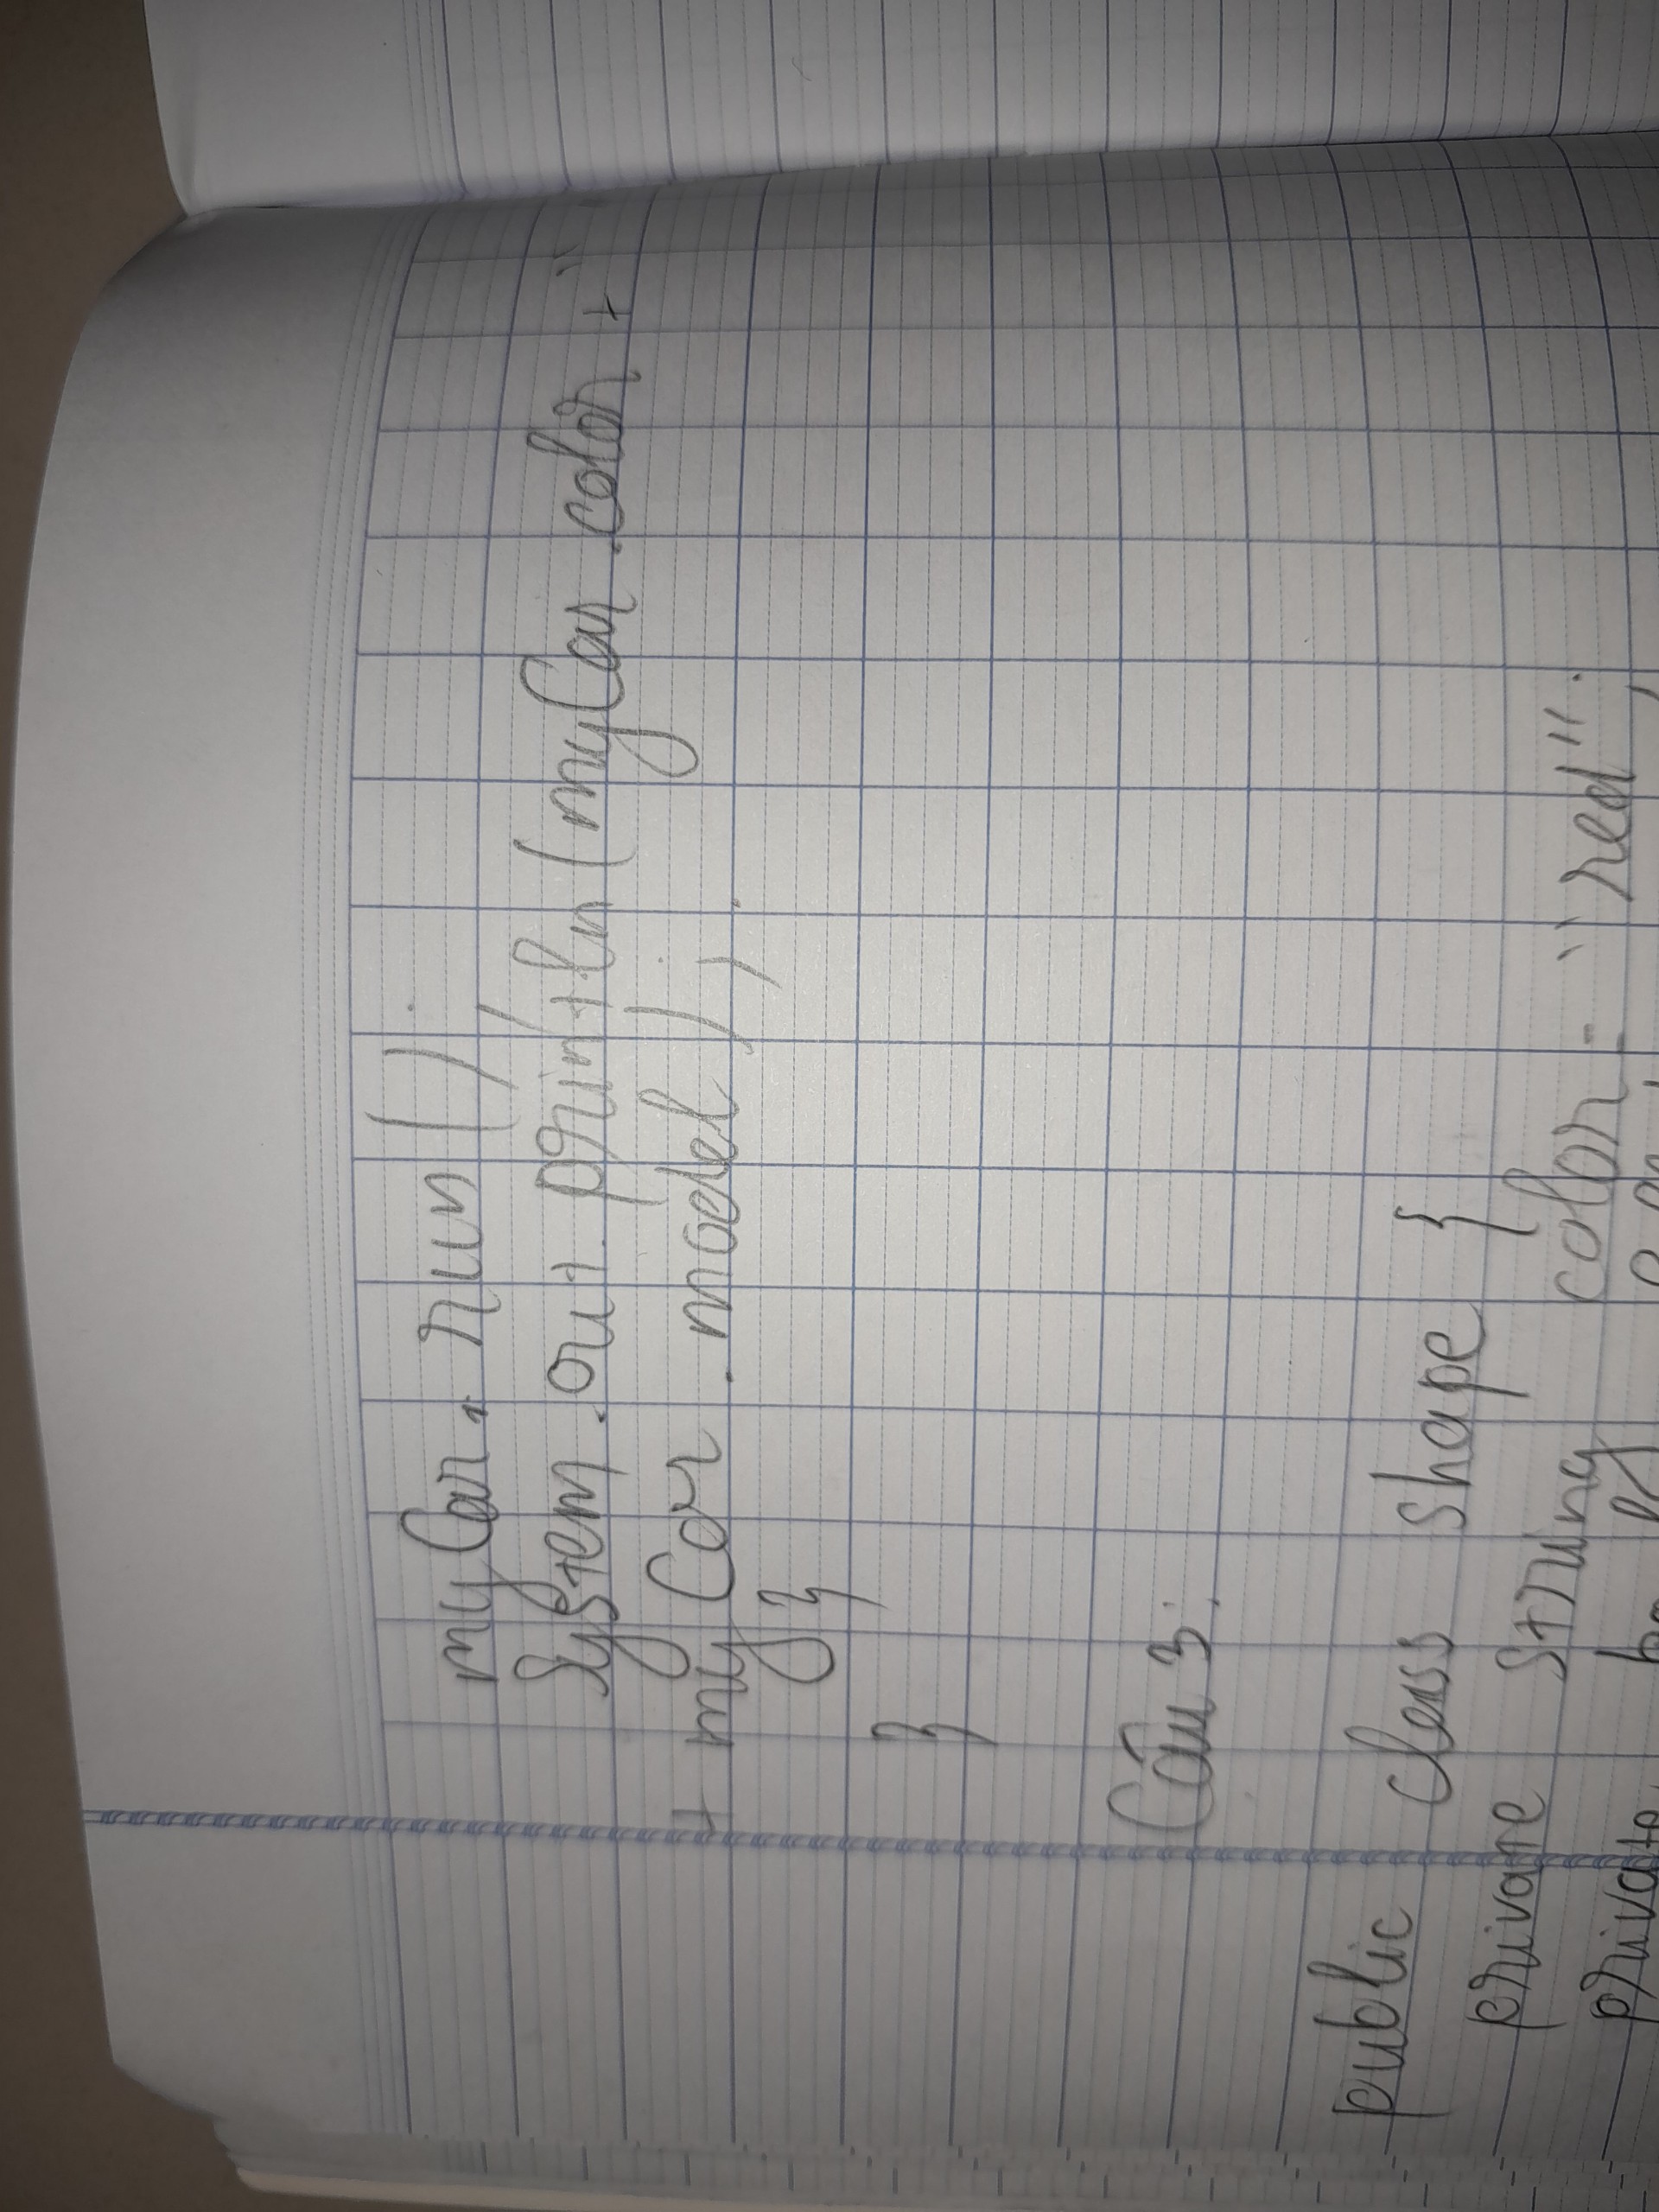 myCar. run ( ) ;
System. out. println (myCar .color + "
+ myCar. model ) ;
}
}
Câu 3:
public class shape {
private string color = "red";
private